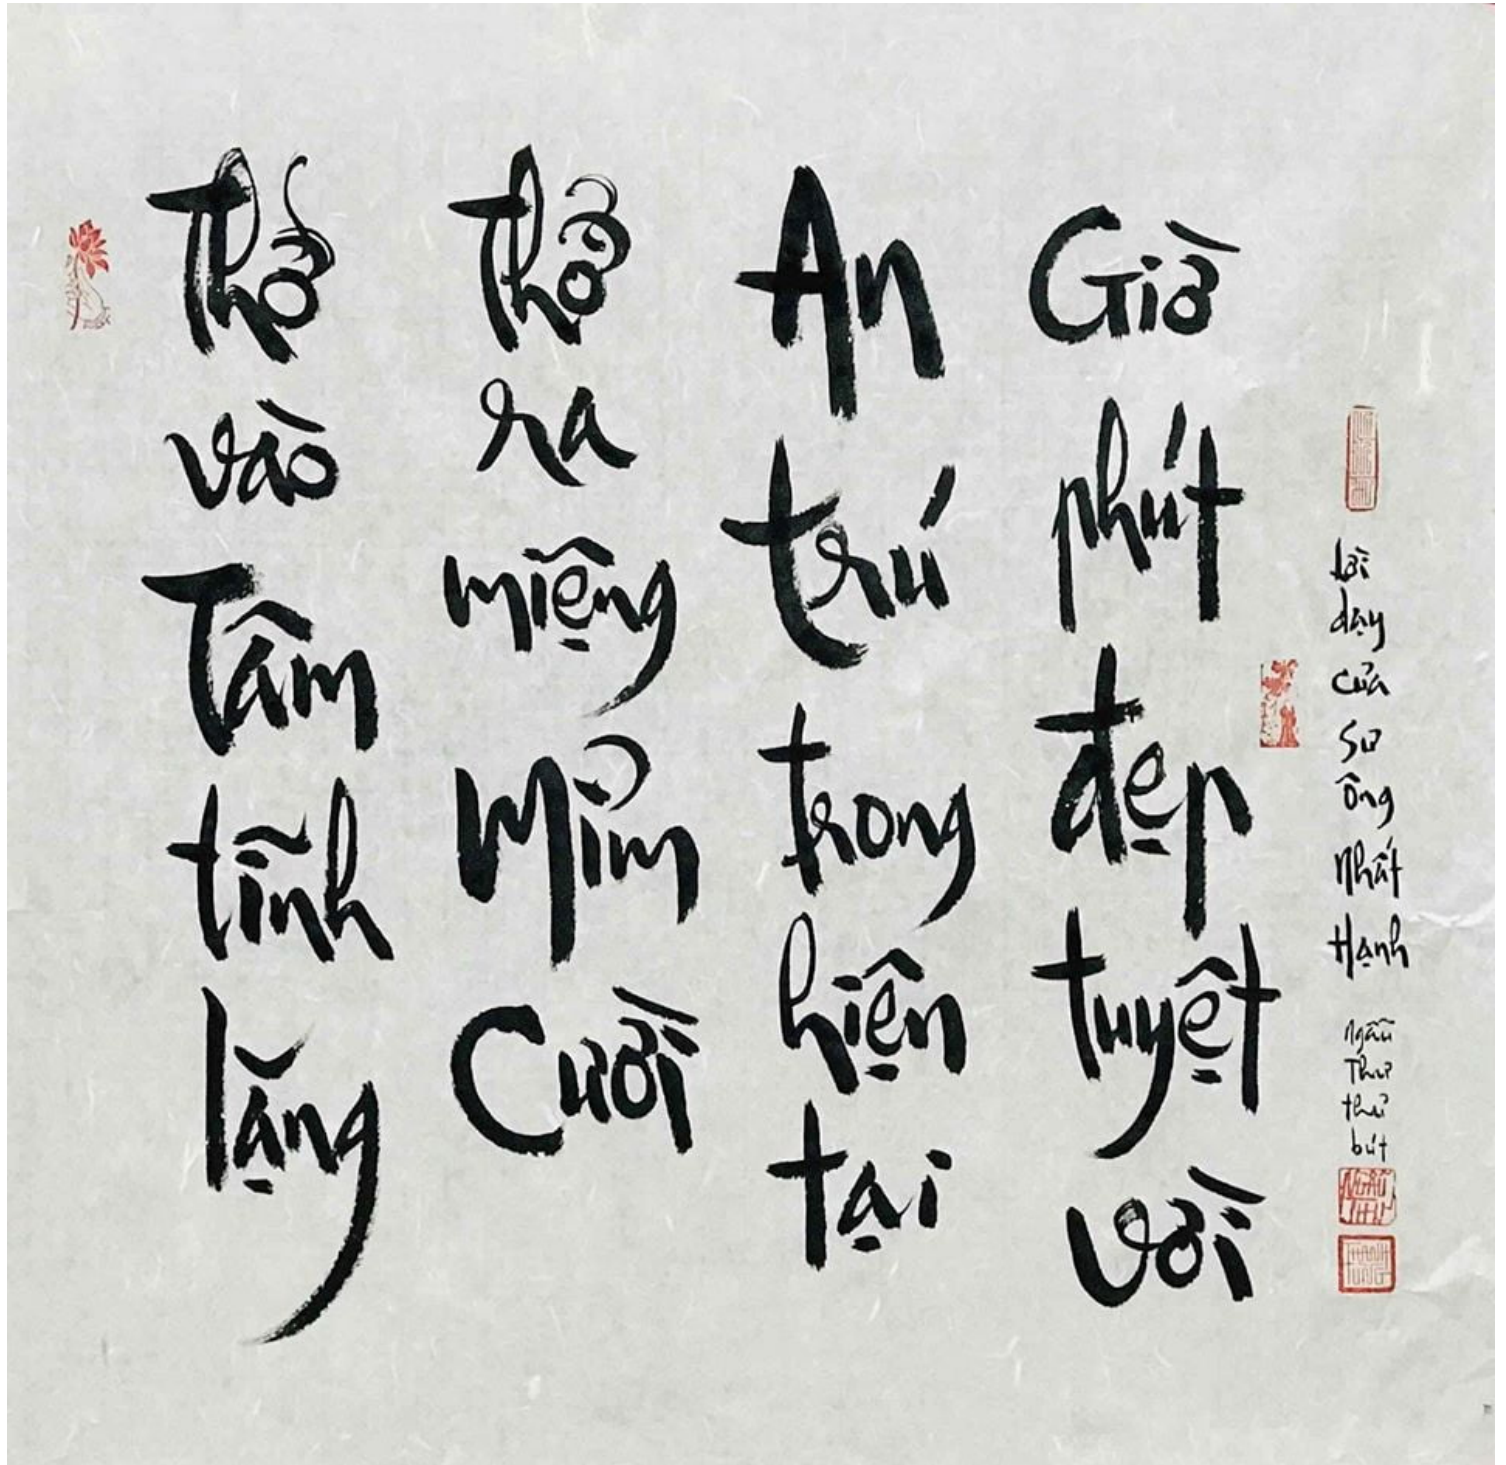 Thở vào Tâm tĩnh lặng
Thở ra miệng Mỉm Cười
An trú trong hiện tại
Giờ phút đẹp tuyệt vời
Lời dạy của Sư Ông Nhất Hạnh
Ngẫu Thư thủ bút
NGẪU THƯ
THANH TÙNG